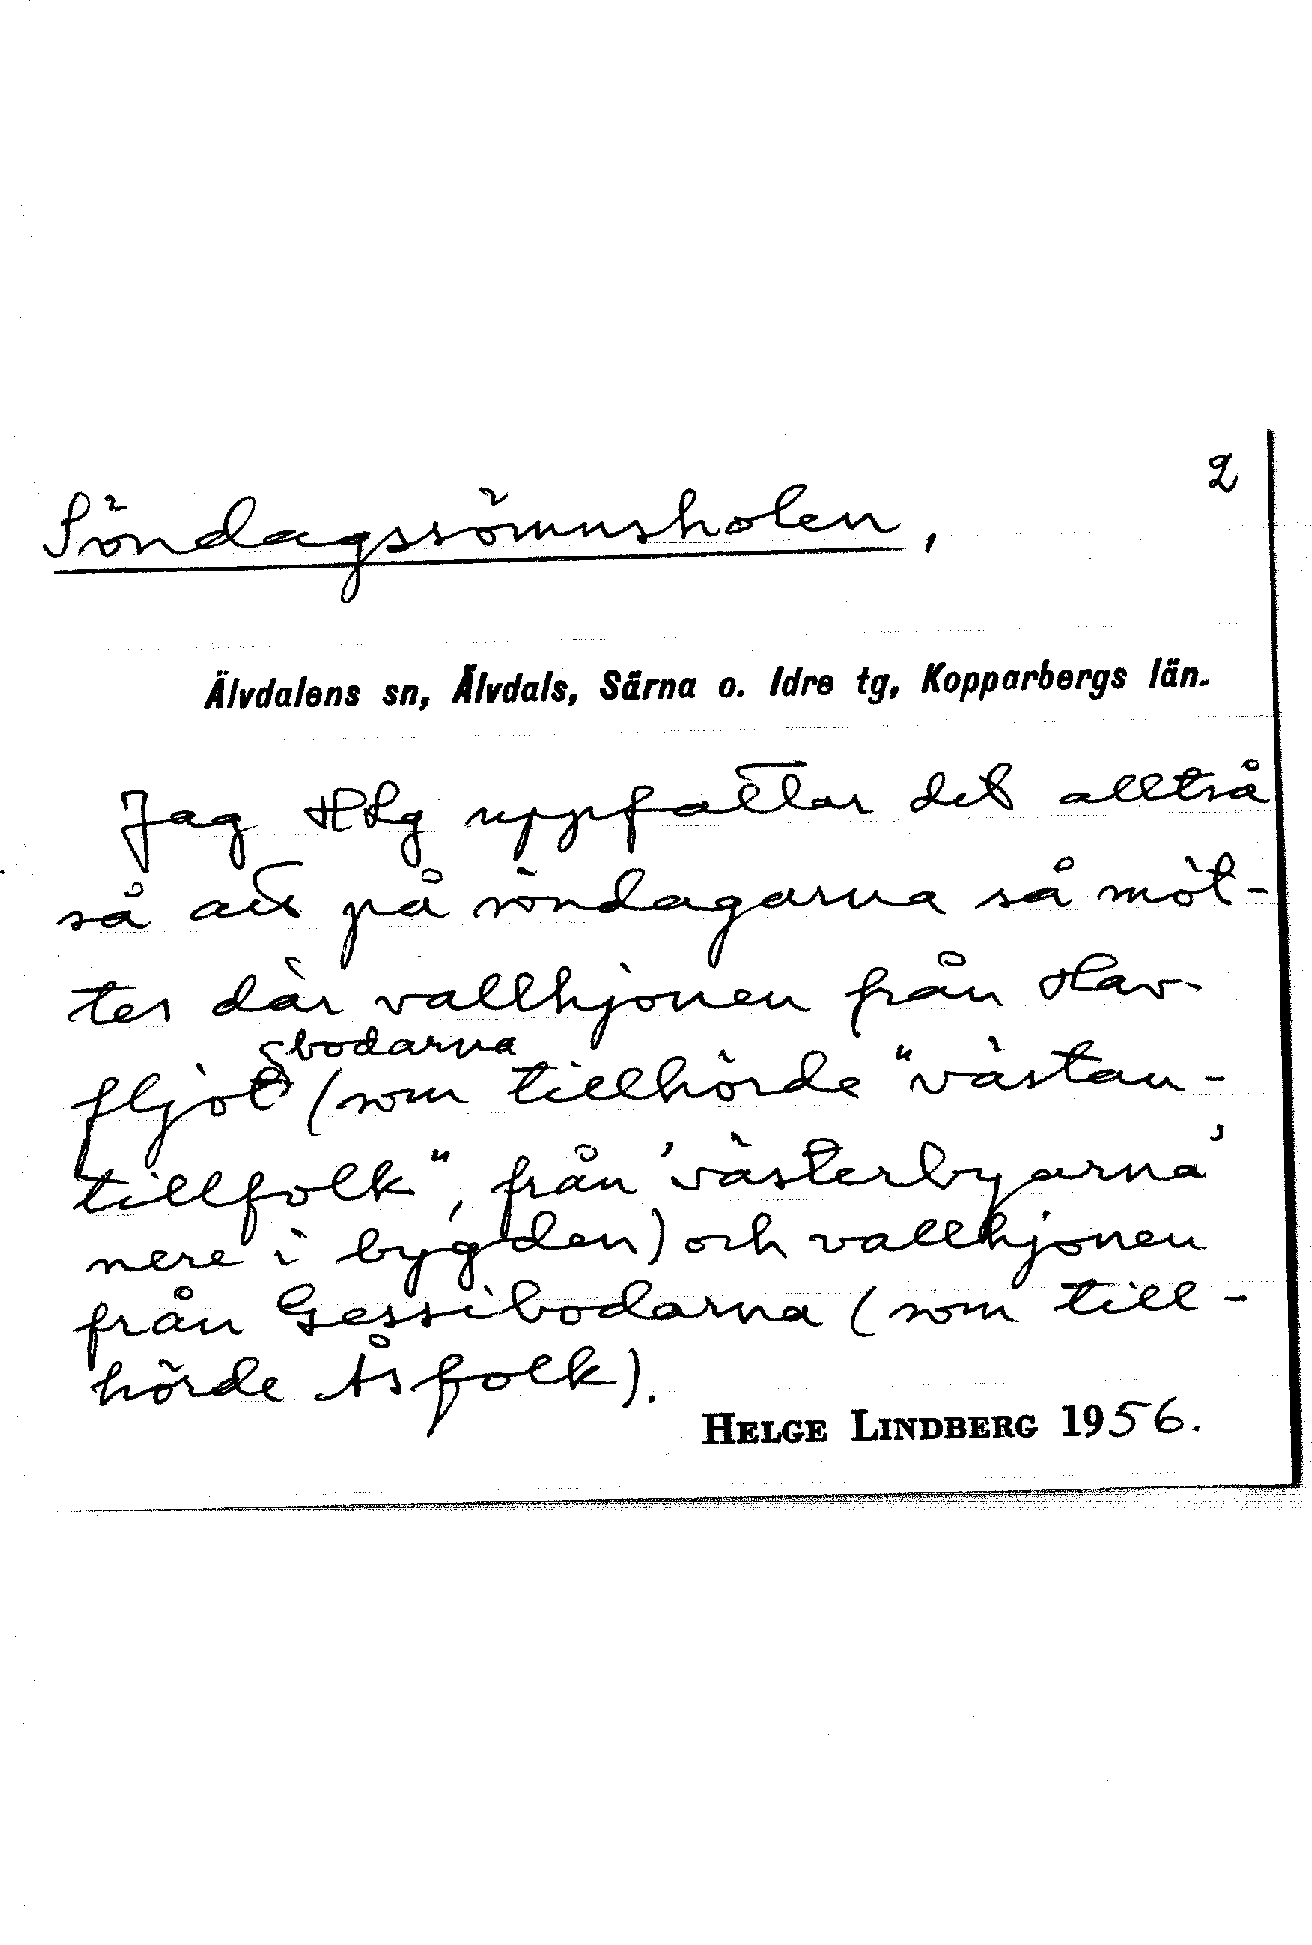 2
Söndagssömnsholen,
Älvdalens sn, Älvdals, Särna o. Idre tg, Kopparbergs län.
Jag HLg uppfattar det alltså
så att på söndagarna så möt-
tes där vallhjonen från Hav-
fljotsbodarna (som tillhörde "västan-
tillfolk", från 'västerbyarna'
nere i bygden) och vallhjonen
från Gessibodarna (som till-
hörde Åsfolk).
HELGE LINDBERG 1956.